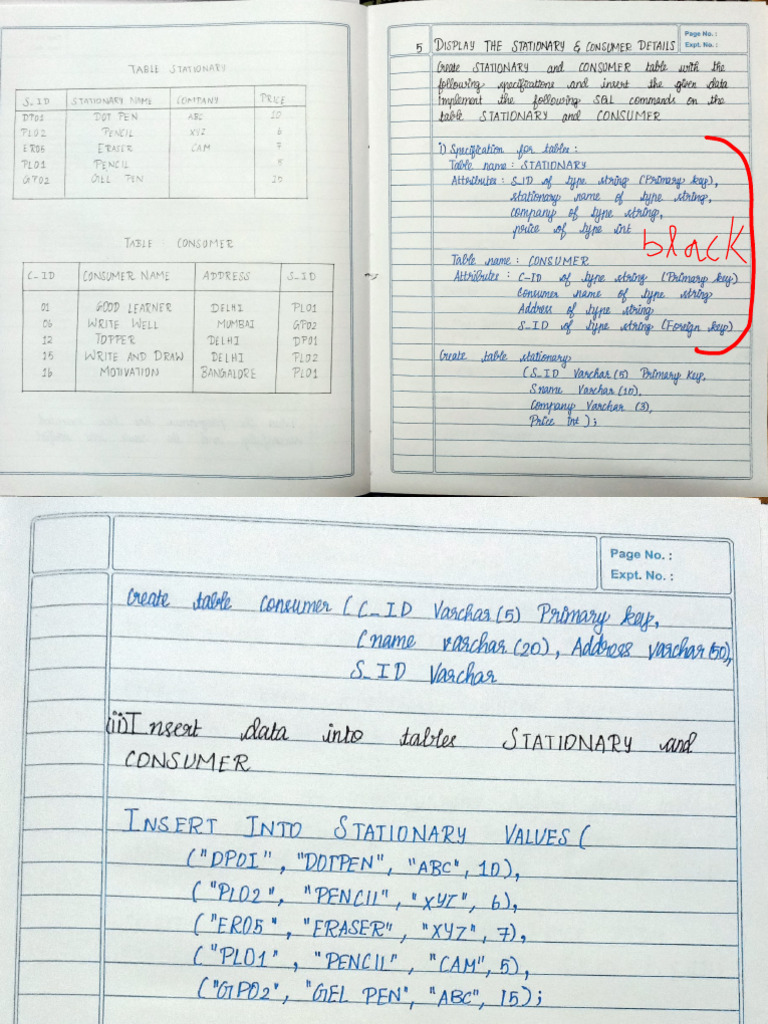 TABLE STATIONARY
S_ID STATIONARY NAME COMPANY PRICE
DP01 DOT PEN ABC 10
PL02 PENCIL XYZ 6
ER05 ERASER CAM 7
PL01 PENCIL 5
GP02 GEL PEN
TABLE CONSUMER
C_ID CONSUMER NAME ADDRESS S_ID
01 GOOD LEARNER DELHI PL01
06 WRITE WELL MUMBAI GP02
12 TOPPER DELHI DP01
15 WRITE AND DRAW DELHI PL02
16 MOTIVATION BANGALORE PL01
Page No. :
Expt. No. :
5 DISPLAY THE STATIONARY & CONSUMER DETAILS
Create STATIONARY and CONSUMER table with the
following specifications and insert the given data
Implement the following SQL commands on the
table STATIONARY and CONSUMER
i) Specification for tables:
Table name : STATIONARY
Attributes : S_ID of type string (Primary key),
stationary name of type string,
company of type string,
price of type int
black
Table name : CONSUMER
Attributes : C-ID of type string (Primary key)
Consumer name of type string
Address of type string
S_ID of type string (Foreign key)
Create table stationary
(S_ID Varchar(5) Primary Key,
Sname Varchar(10),
Company Varchar (3),
Price int );
Page No. :
Expt. No. :
Create table Consumer ( C_ID Varchar(5) Primary key,
Cname varchar(20), Address varchar(50),
S_ID Varchar
(ii) Insert data into tables STATIONARY and
CONSUMER
INSERT INTO STATIONARY VALUES (
("DP01", "DOTPEN", "ABC", 10),
("PL02", "PENCIL", "XYZ", 6),
("ER05", "ERASER", "XYZ", 7),
("PL01", "PENCIL", "CAM", 5),
("GP02", "GEL PEN", "ABC", 15);